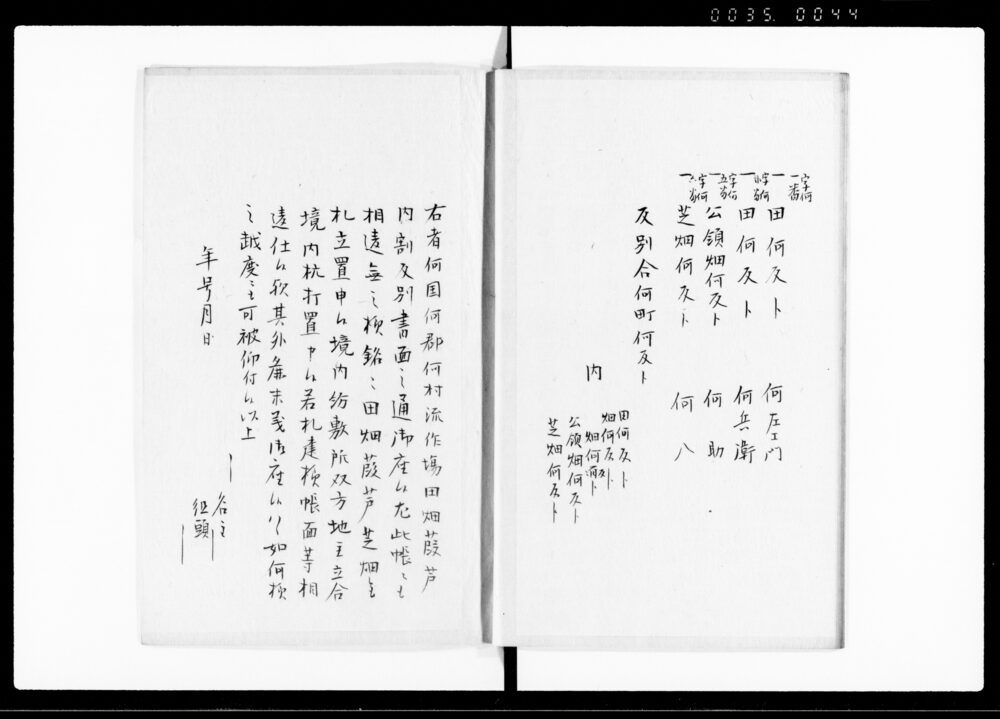 0035. 0044
字何
一番
一田何反歩 何左エ門
字何
一田何反歩 何兵衛
字何
五番
一公領畑何反歩 何助
字何
六番
一芝畑何反歩 何八
反別合何町何反歩
内
田何反歩
畑何反歩
公領畑何反歩
芝畑何反歩
右者何国何郡何村流作場田畑葭芦
内割反別書面之通御座候尤此帳ニも
相違無之様銘ニ田畑葭芦芝畑
札立置申候境内紛敷所双方地主立合
境内杭打置申候若札建様帳面等相
違仕候歟其外麁末義御座候ハヽ如何様
之越度ニも可被仰付候以上
年号月日
名主
組頭